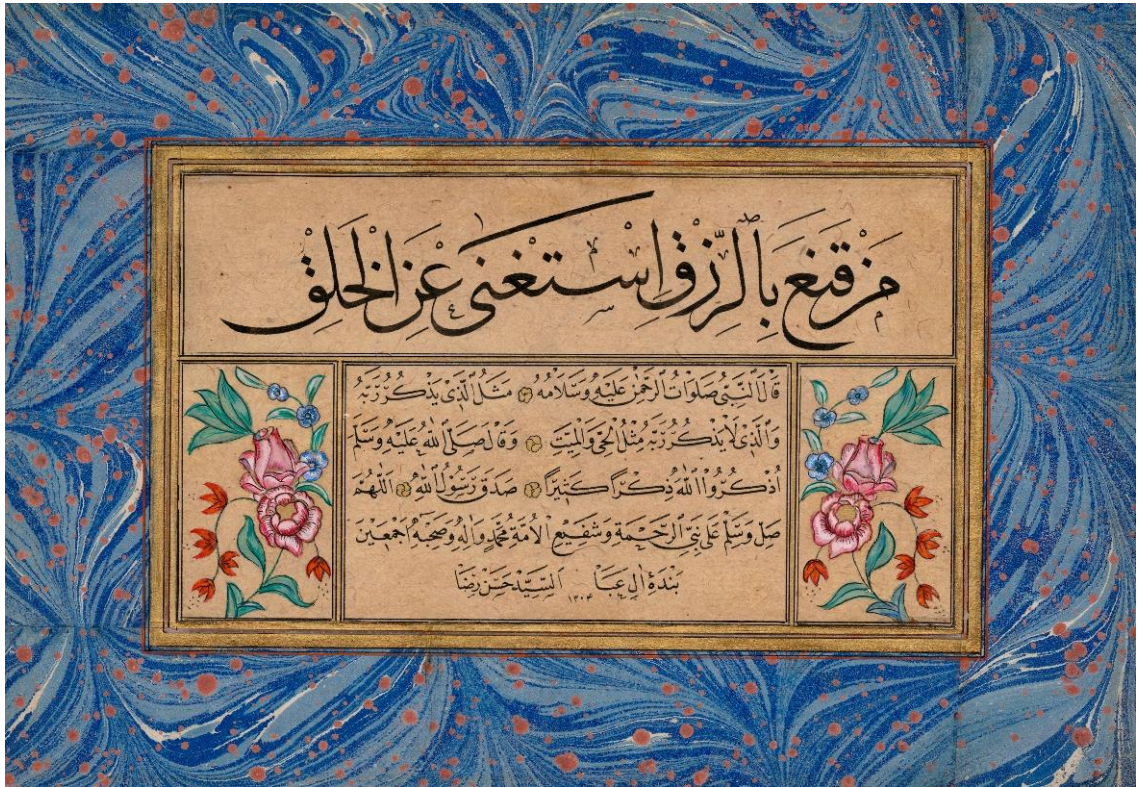 مَنْ قَنَعَ بِالرِّزْقِ اِسْتَغْنٰى عَنِ الْخَلْقِ
قَالَ النَّبِيُّ صَلَوَاتُ الرَّحْمٰنِ عَلَيْهِ وَسَلَامُهُ مَثَلُ الَّذِى يَذْكُرُ رَبَّهُ
وَالَّذِى لَا يَذْكُرُ رَبَّهُ مَثَلُ الْحَىِّ وَالْمَيِّتِ وَقَالَ صَلَّى اللهُ عَلَيْهِ وَسَلَّمَ
اُذْكُرُوا اللهَ ذِكْرًا كَثِيرًا صَدَقَ رَسُولُ اللهِ اَللّٰهُمَّ
صَلِّ وَسَلِّمْ عَلٰى نَبِىِّ الرَّحْمَةِ وَشَفِيعِ الْاُمَّةِ مُحَمَّدٍ وَاٰلِهِ وَصَحْبِهِ اَجْمَعِينَ
بَنْدَهٔ اٰلِ عَبَا السَّيِّدْ حَسَنْ رِضَا